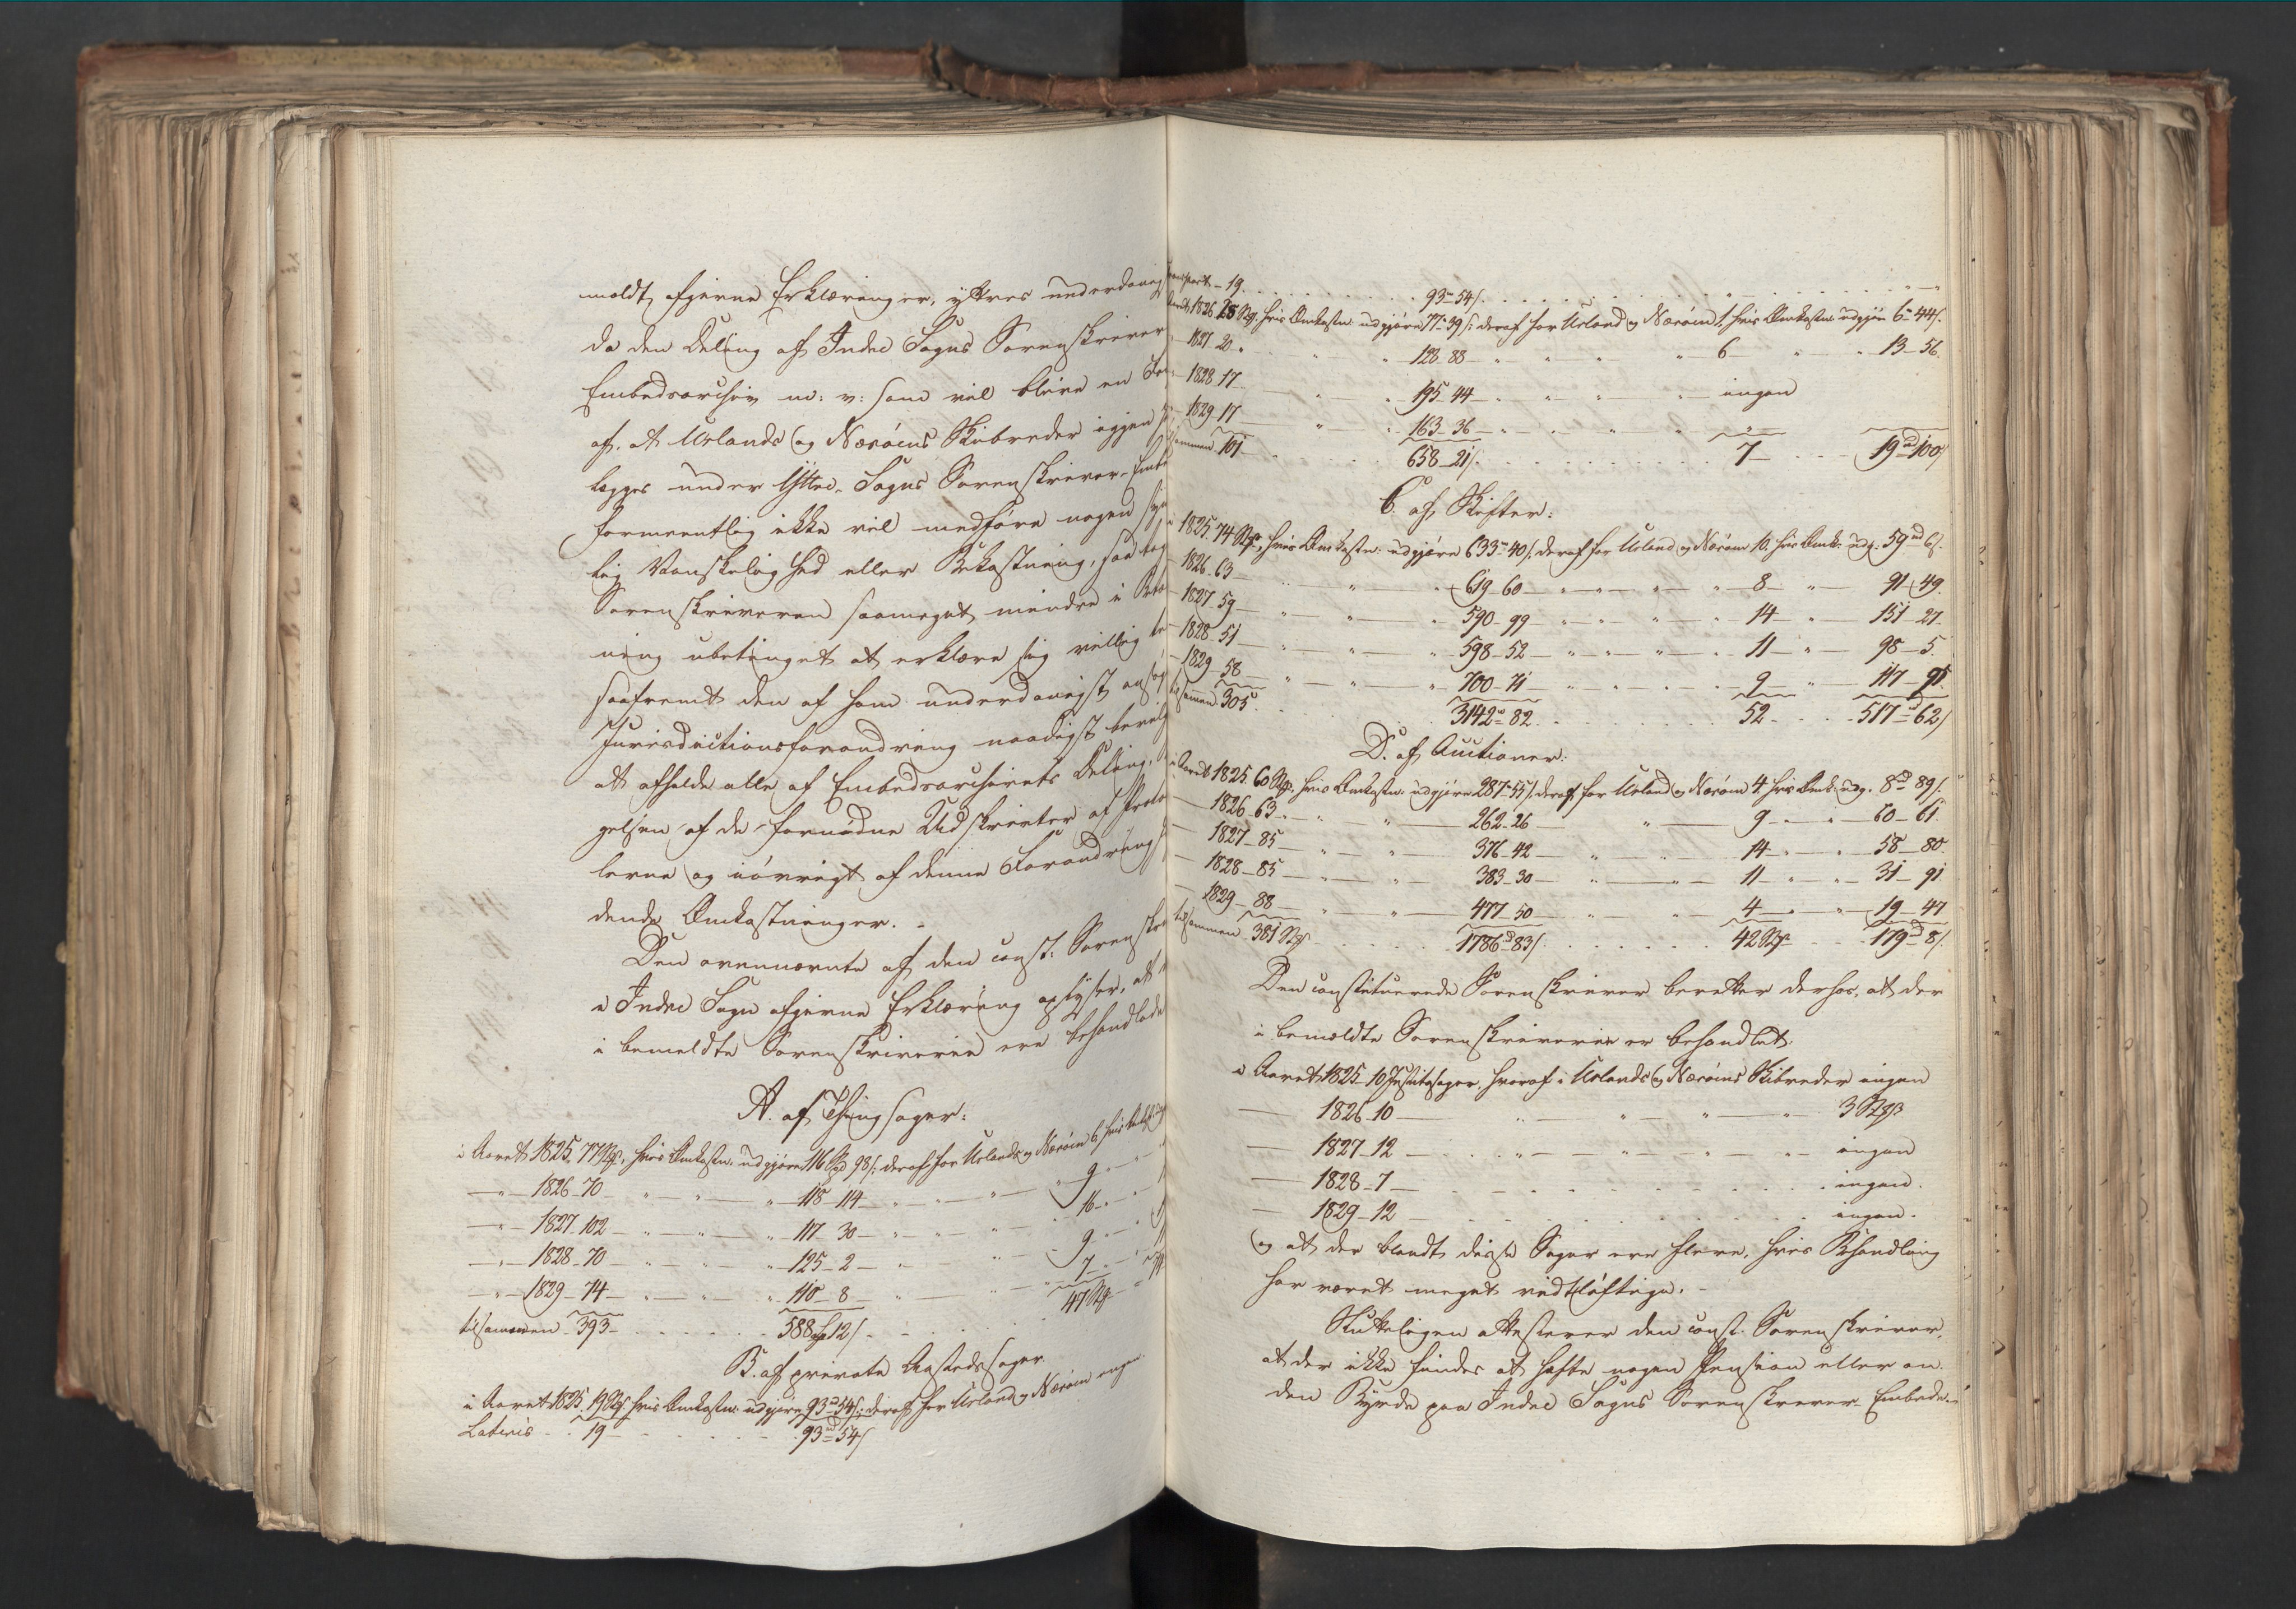 meldt afgivne Erklæringer, yttres underdanig
da den Deling af Indre Sogns Sorenskriver
Embedsarchiv m: v: som vil blive en Føl
af, at Urlands og Nærøens Skibreder igjen
lægges under Yttre-Sogns Sorenskriver-Embe
formeentlig ikke vil medføre nogen syn
lig Vanskelighed eller Bekostning, saa tog
Sorenskriveren saameget mindre i Betæ
ning ubetinget at erklære sig villig te
saafremt den af ham underdanigst ansøg
Jurisdictionsforandring naadigst bevilg
at afholde alle af Embedsarchivets Deling,
gelsen af de fornødne Udskrivter af Proto
lerne og iøvrigt af denne Forandring
dende Omkostninger. -
Den ovennævnte af den const: Sorenskri
i Indre Sogn afgivne Erklæring oplyser, at
i bemeldte Sorenskriverie ere behandlede
A. af Thingsager:
i Aaret 1825. 77 Stkr, hvis Omkostn: udgjøre 116 Spd 98 s: deraf for Urlands og Nærøen 6, hvis
- " - 1826 - 70 - " - " - " 118 - 114 - " - " 9 - "
- " - 1827 - 102 - " - " - " 117 - 30 - " - " 16 - "
- " - 1828 - 70 - " - " - " 125 - 2 - " - " 9 - "
- " - 1829 - 74 - " - " - " 110 - 8 - " - " 7 - "
tilsammen 393 - 588 Spd 12 s - 47 Stkr
B. af private Aastedssager
i Aaret 1825. 19 Stkr, hvis Omkostn: udgjøre 93 - 54 s; deraf for Urland og Nærøen ingen.
Lateris . . 19 - 93 - 54 s
Transport - 19. 93 - 54 s.
Aaret 1826 28 Stkr. hvis Omkostn: udgjøre 77 - 39 s: deraf for Urland og Nærøen 1, hvis Omkostn: udgjør 6 - 44 s.
- 1827 20 " 128 - 88 - " - " 6 " 13 - 56.
- 1828 17 - " - " 195 - 44 - " - " ingen
- 1829 17 - " - " 163 - 36 - " - "
sammen 101 - 658 - 21 s. 7 - 19 - 100 s
C. af Skifter:
i 1825. 74 Stkr, hvis Omkostn: udgjøre 633 - 40 s. deraf for Urland og Nærøen 10, hvis Omk: udg: 59 - 6 s.
- 1826 - 63 - " - " 619 - 60 - " - " 8 - " - 91 - 49.
- 1827 - 59 - " - " 590 - 99 - " - " 14 - " - 151 - 27.
- 1828 - 51 - " - " 598 - 52 - " - " 11 - " - 98 - 5.
- 1829 - 58 - " - " 700 - 71 - " - " 9 - " - 117 - 91.
tilsammen 305. 3142 - 82. 52. 517 - 62 s
D. af Auctioner:
i Aaret 1825 60 Stkr, hvis Omkostn: udgjøre 287 - 55 s, deraf for Urland og Nærøen 4 hvis Omk: udg. 8 - 89 s.
- 1826 - 63 - " - " 262 - 26 - " - 9 - " - 60 - 61.
- 1827 - 85 - " - " 376 - 42 - " - 14 - " - 58 - 80.
- 1828 - 85 - " - " 383 - 30 - " - 11 - " - 31 - 91
- 1829 - 88 - " - " 477 - 50 - " - 4 - " - 19 - 47
tilsammen 381 Stkr 1786 - 83 s. 42 Stkr 179 - 8 s.
Den constituerede Sorenskriver beretter derhos, at der
i bemeldte Sorenskriverie er behandlet:
i Aaret 1825 10 Justitssager, hvoraf i Urlands og Nærøens Skibreder ingen
- 1826 - 10 - " - " 3 Stkr
- 1827 - 12 - " - " ingen
- 1828 - 7 - ingen.
- 1829 - 12 - ingen.
og at der blandt disse Sager ere flere, hvis Behandling
har været meget vidtløftige. -
Sluttelig attesterer den const. Sorenskriver,
at der ikke findes at hefte nogen Pension eller an-
den Byrde paa Indre Sogns Sorenskriver-Embede.